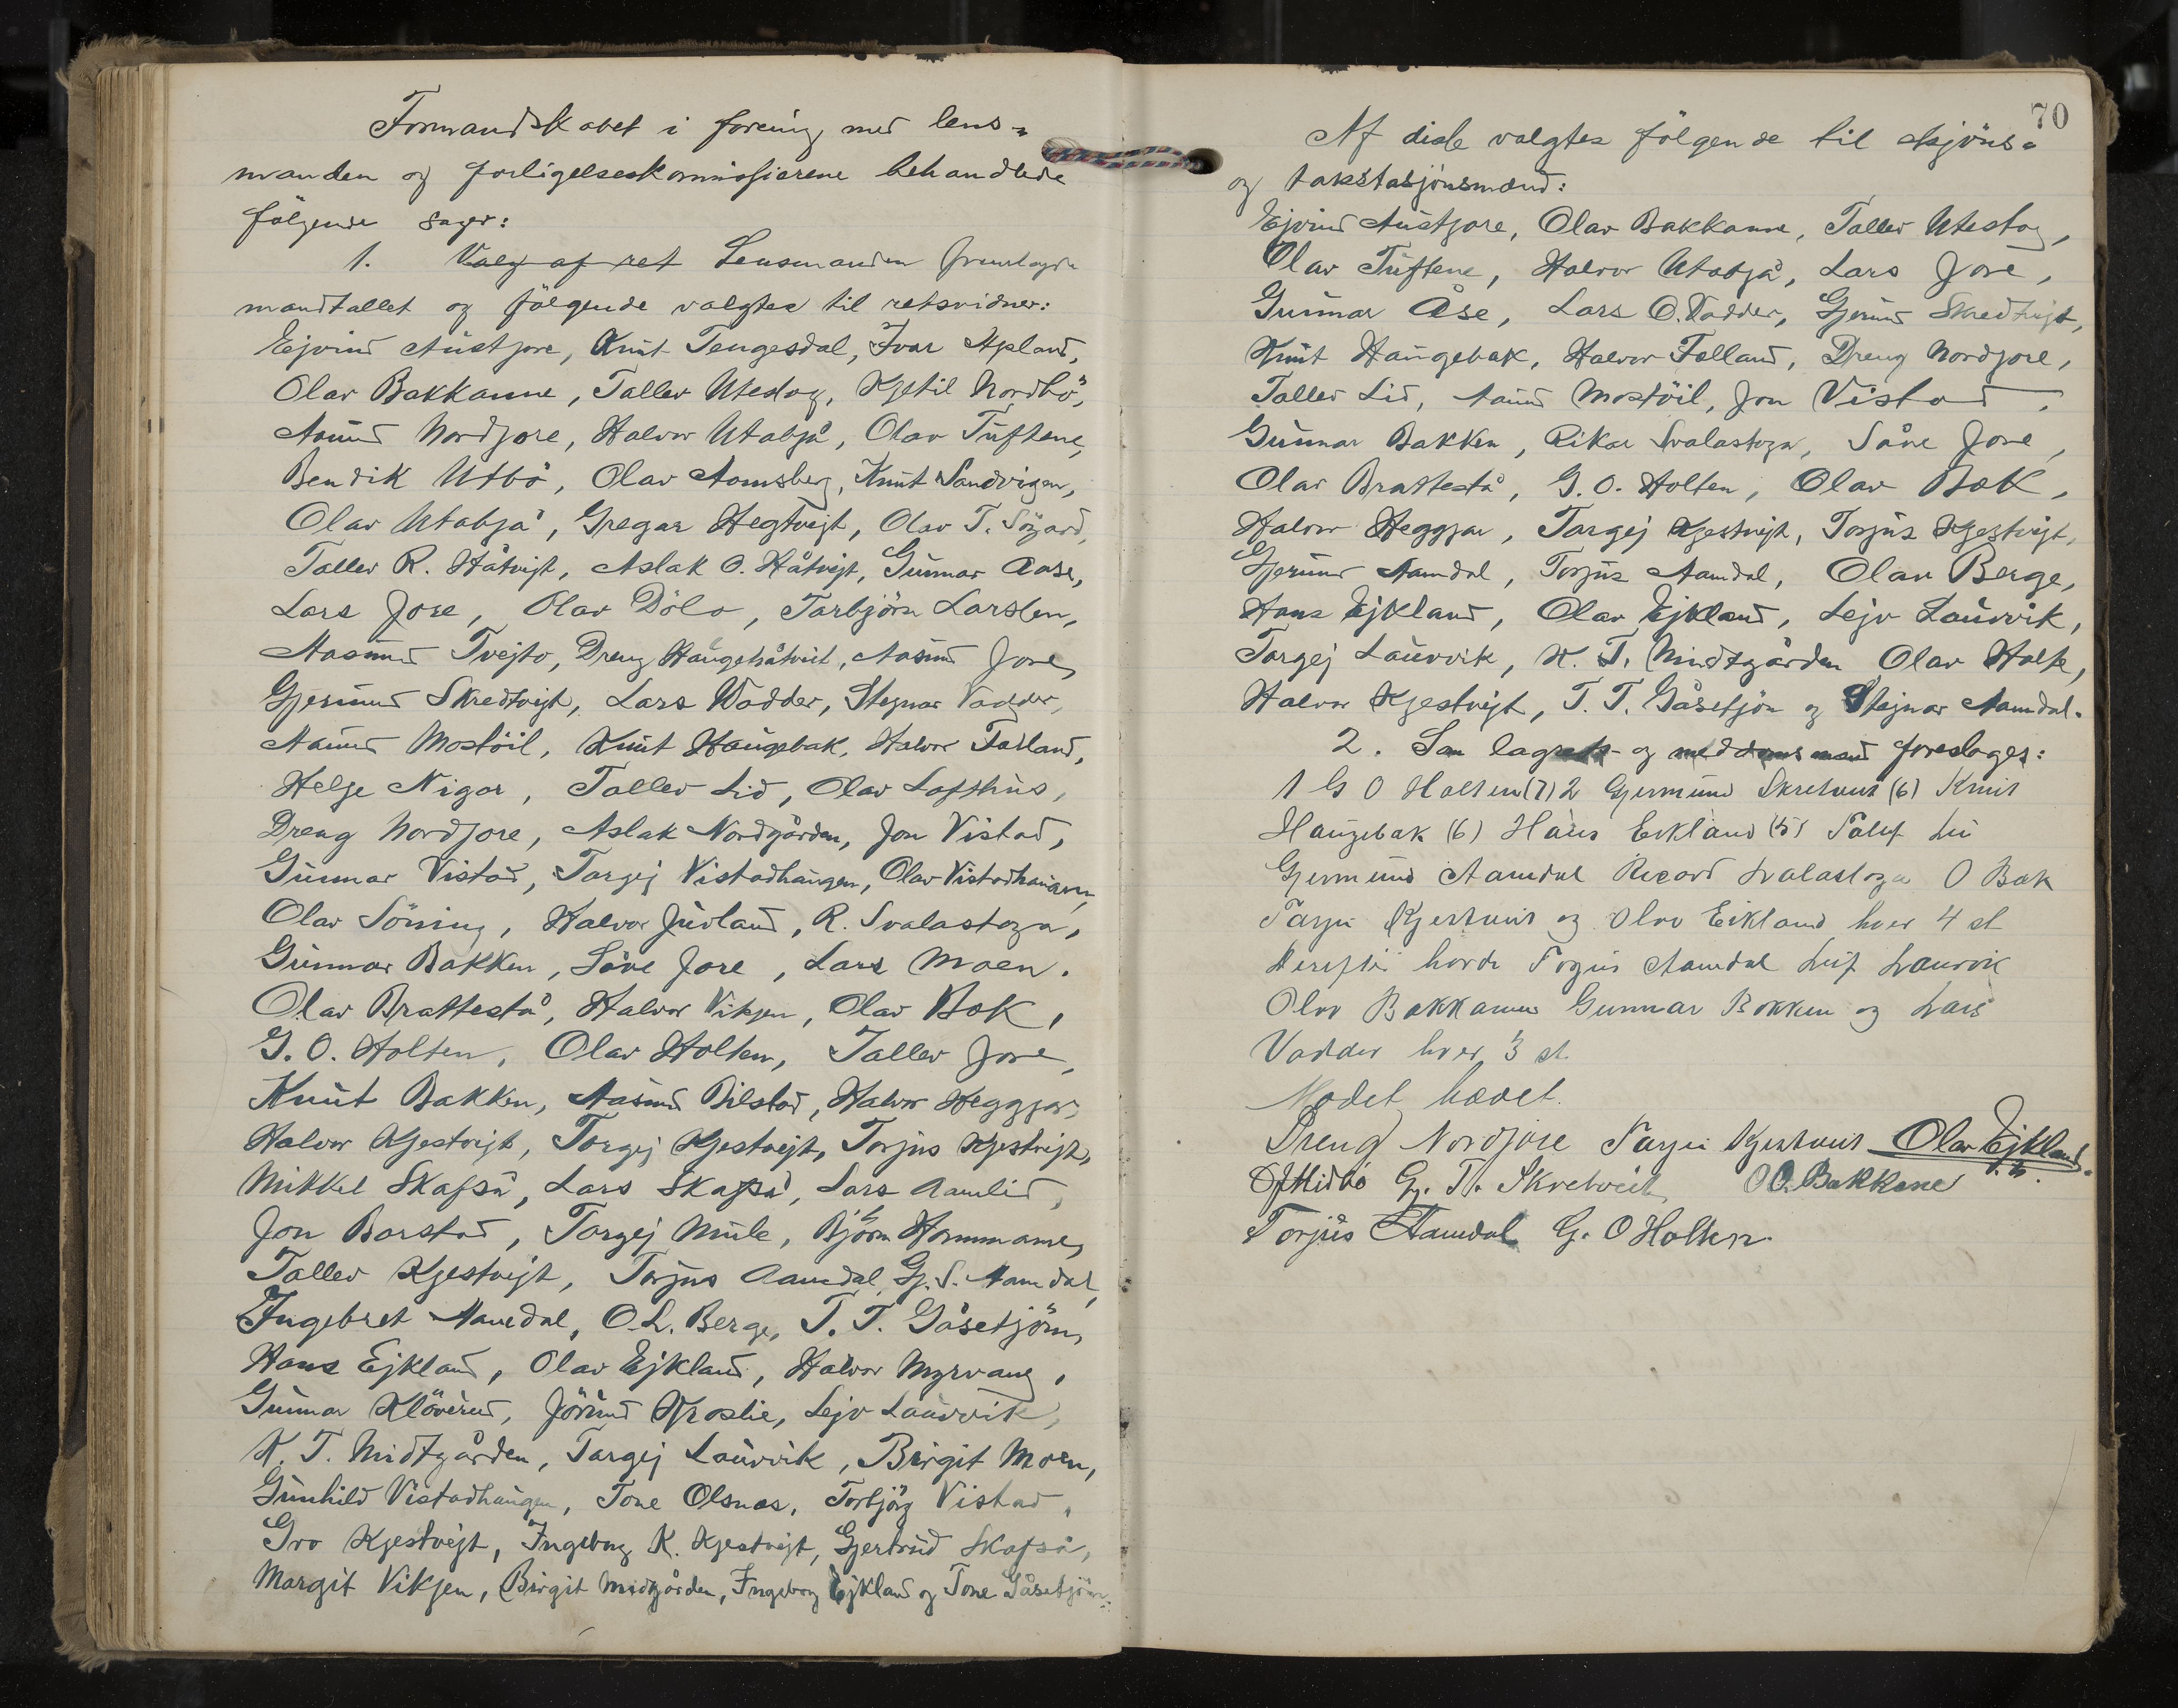 Formandskabet i forening med lens-
manden og forligelseskommissierene behandlede
følgende sager:
1. Valg af ret Lensmanden fremlagde
mandtallet og følgende valgtes til retsvidner:
Ejvind Austjore, Knut Tengesdal, Ivar Apland,
Olav Bakkanne, Tallev Utestog, Kjetil Nordbö,
Aanund Nordjore, Halvor Utabjå, Olav Tuftene,
Bendik Utbö, Olav Aamsberg, Knut Sandvigen,
Olav Utabjå, Gregar Hegtvejt, Olav T. Sögard,
Tallev R. Håtvejt, Aslak O. Håtvejt, Gunnar Aase,
Lars Jore, Olav Döla, Tarbjörn Larsten,
Aasmund Tvejto, Dreng Haugehåtveit, Aasmund Jore,
Gjermund Skredtvejt, Lars Vadder, Stejnar Vadder,
Aanund Mostöil, Knut Haugebak, Halvor Falland,
Helge Nigar, Tallev Lid, Olav Lofthus,
Dreng Nordjore, Aslak Nordgården, Jon Vistad,
Gunnar Vistad, Targej Vistadhaugen, Olav Vistadhaugen,
Olav Söning, Halvor Juvland, R. Svalastoga,
Gunnar Bakken, Såve Jore, Lars Moen.
Olav Brattestå, Halvor Vikjen, Olav Bæk,
G. O. Holten, Olav Holten, Tallev Jore,
Knut Bakken, Aasmund Bilstad, Halvor Heggjar,
Halvor Kjestvejt, Torgej Kjestvejt, Torjus Kjestvejt,
Mikkel Skafså, Lars Skafså, Lars Aamlid,
Jon Barstad, Torgej Mule, Björn Hommane,
Tallev Kjestvejt, Torjus Aamdal, Gj. S. Aamdal,
Ingebret Aamdal, O. L. Berge, T. T. Gåsetjörn,
Hans Ejkland, Olav Ejkland, Halvor Myrvang,
Gunnar Klöverud, Jörund Kroslie, Lejv Lauvvik,
K. T. Midtgården, Targej Lauvvik, Birgit Moen,
Gunhild Vistadhaugen, Tone Olsnæs, Torbjörg Vistad,
Gro Kjestvejt, Ingeborg K. Kjestvejt, Gjertrud Skafså,
Margit Vikjen, Birgit Midgården, Ingeborg Ejkland og Tone Gåsetjörn.
70
Af disse valgtes følgende til skjöns-
og takstasjonsmænd:
Ejvind Austjore, Olav Bakkanne, Tallev Utestog,
Olav Tuftene, Halvor Utabjå, Lars Jore,
Gunnar Åse, Lars O. Vadder, Gjermund Skredtvejt,
Knut Haugebak, Halvor Falland, Dreng Nordjore,
Tallev Lid, Aanund Mostöil, Jon Vistad,
Gunnar Bakken, Rikar Svalastoga, Såve Jore,
Olav Brattestå, G. O. Holten, Olav Bæk,
Halvor Heggjar, Targej Kjestvejt, Torjus Kjestvejt,
Gjermund Aamdal, Torjus Aamdal, Olav Berge,
Hans Ejkland, Olav Ejkland, Lejv Lauvvik,
Torgej Lauvvik, K. T. Midtgården Olav Holte,
Halvor Kjestvejt, T. T. Gåsetjön og Stejnar Aamdal.
2. Som lagrets- og meddomsmænd foresloges:
1 G O Holten (7) 2 Gjermund Skretveit (6) Knut
Haugebak (6) Hans Eikland (5) Talef Lii
Gjermund Aamdal Ricard Svalastoga O Bæk
Targei Kjestveit og Olav Eikland hver 4 st
Derefter havde Torjus Aamdal Leif Lauvvik
Olav Bakkanne Gunnar Bakken og Lars
Vadder hver 3 st.
Mødet hævet.
Dreng Nordjore Targei Kjestveit Olav Ejkland.
Midbö Gj. T. Skretveit O O. Bakkane
Torjus Aamdal G. O Holten